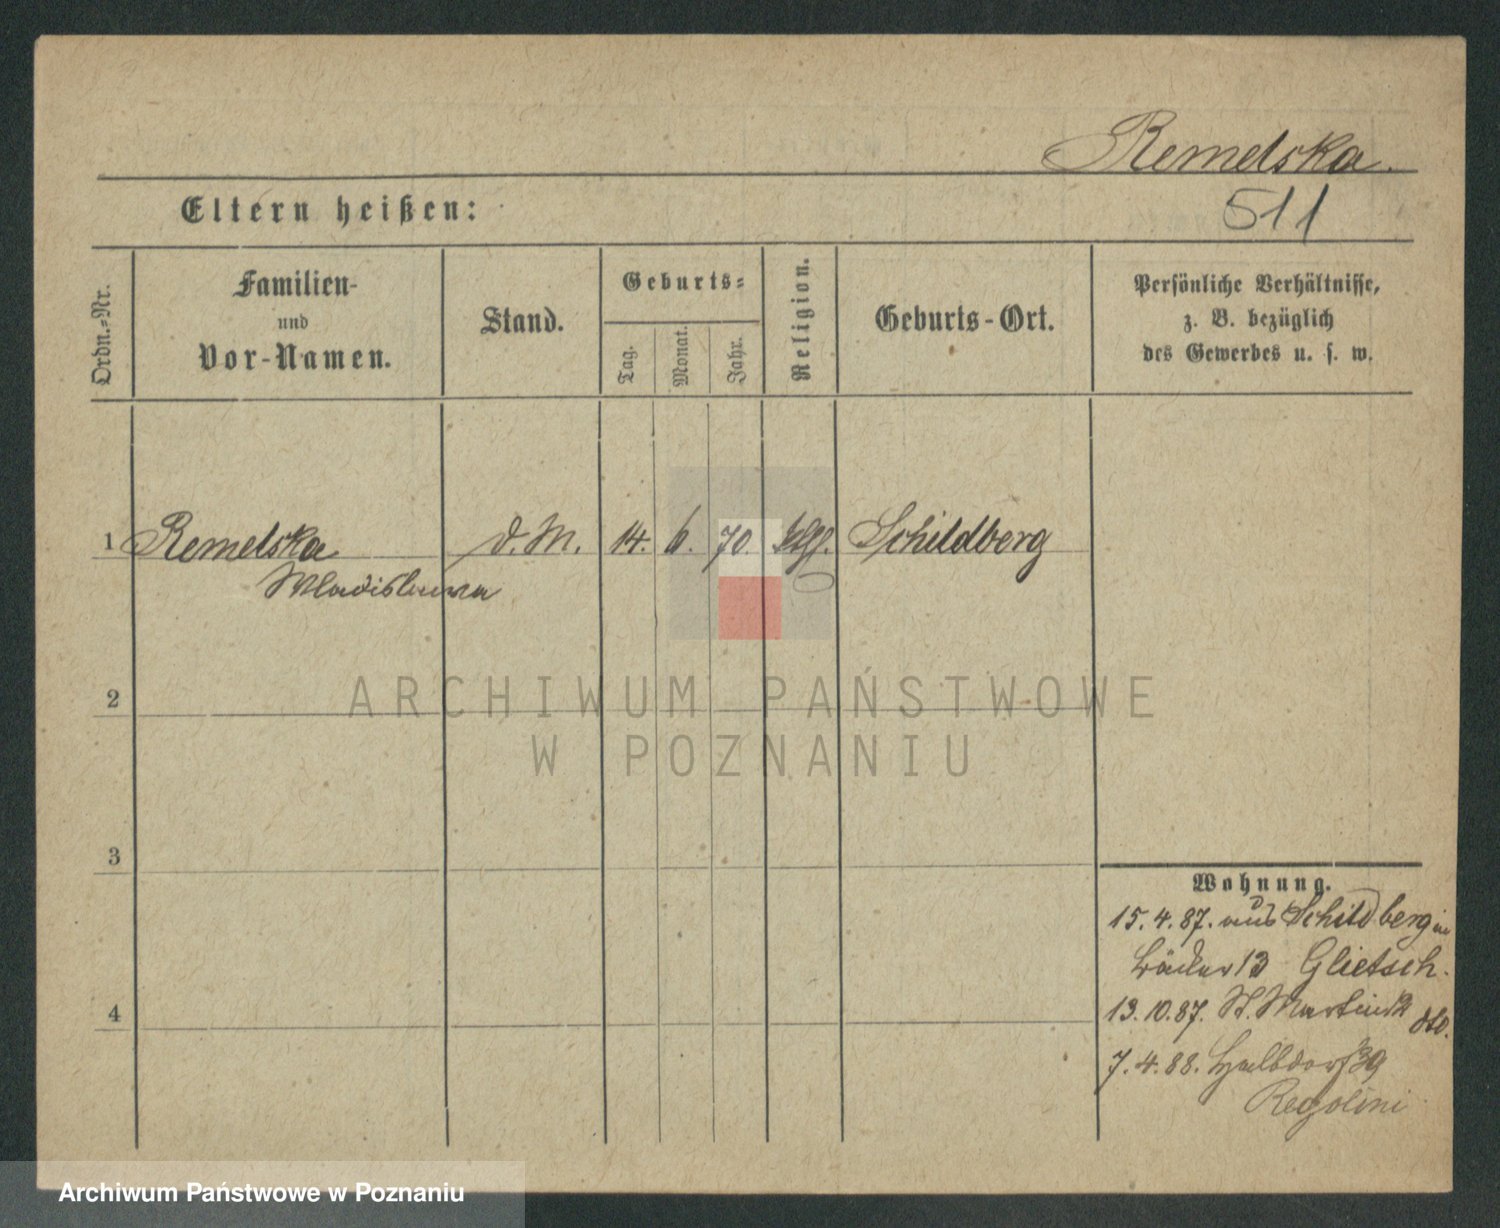 Remelska.
511
Eltern heißen:
Ordn.-Nr.
Familien-
und
Vor-Namen.
Stand.
Geburts-
Tag.
Monat.
Jahr.
Religion.
Geburts-Ort.
Persönliche Verhältnisse,
z. B. bezüglich
des Gewerbes u. s. w.
1 Remelska d. M. 14. 6. 70 kth. Schildberg
Wladislawa
2
3
4
Wohnung.
15. 4. 87. aus Schildberg in
Bäcker 13 Glietsch.
13. 10. 87. St. Martin dto.
7. 4. 88. Halbdorf 39
Regolini
ARCHIWUM PAŃSTWOWE
W POZNANIU
Archiwum Państwowe w Poznaniu